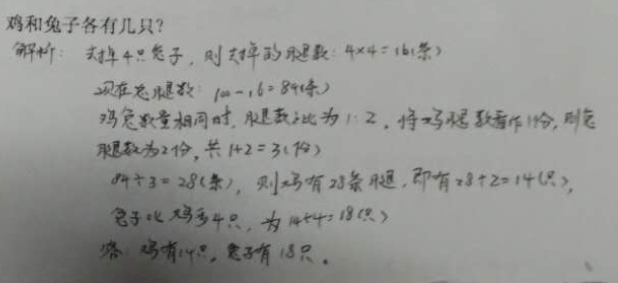 鸡和兔子各有几只？
解析：去掉4只兔子，则去掉的腿数：4×4=16(条)
现在总腿数：100-16=84(条)
鸡兔数量相同时，腿数之比为1:2，将鸡腿数看作1份，则兔
腿数为2份，共1+2=3(份)
84÷3=28(条)，则鸡有28条腿，即有28÷2=14(只)，
兔子比鸡多4只，为14+4=18(只)
答：鸡有14只，兔子有18只。